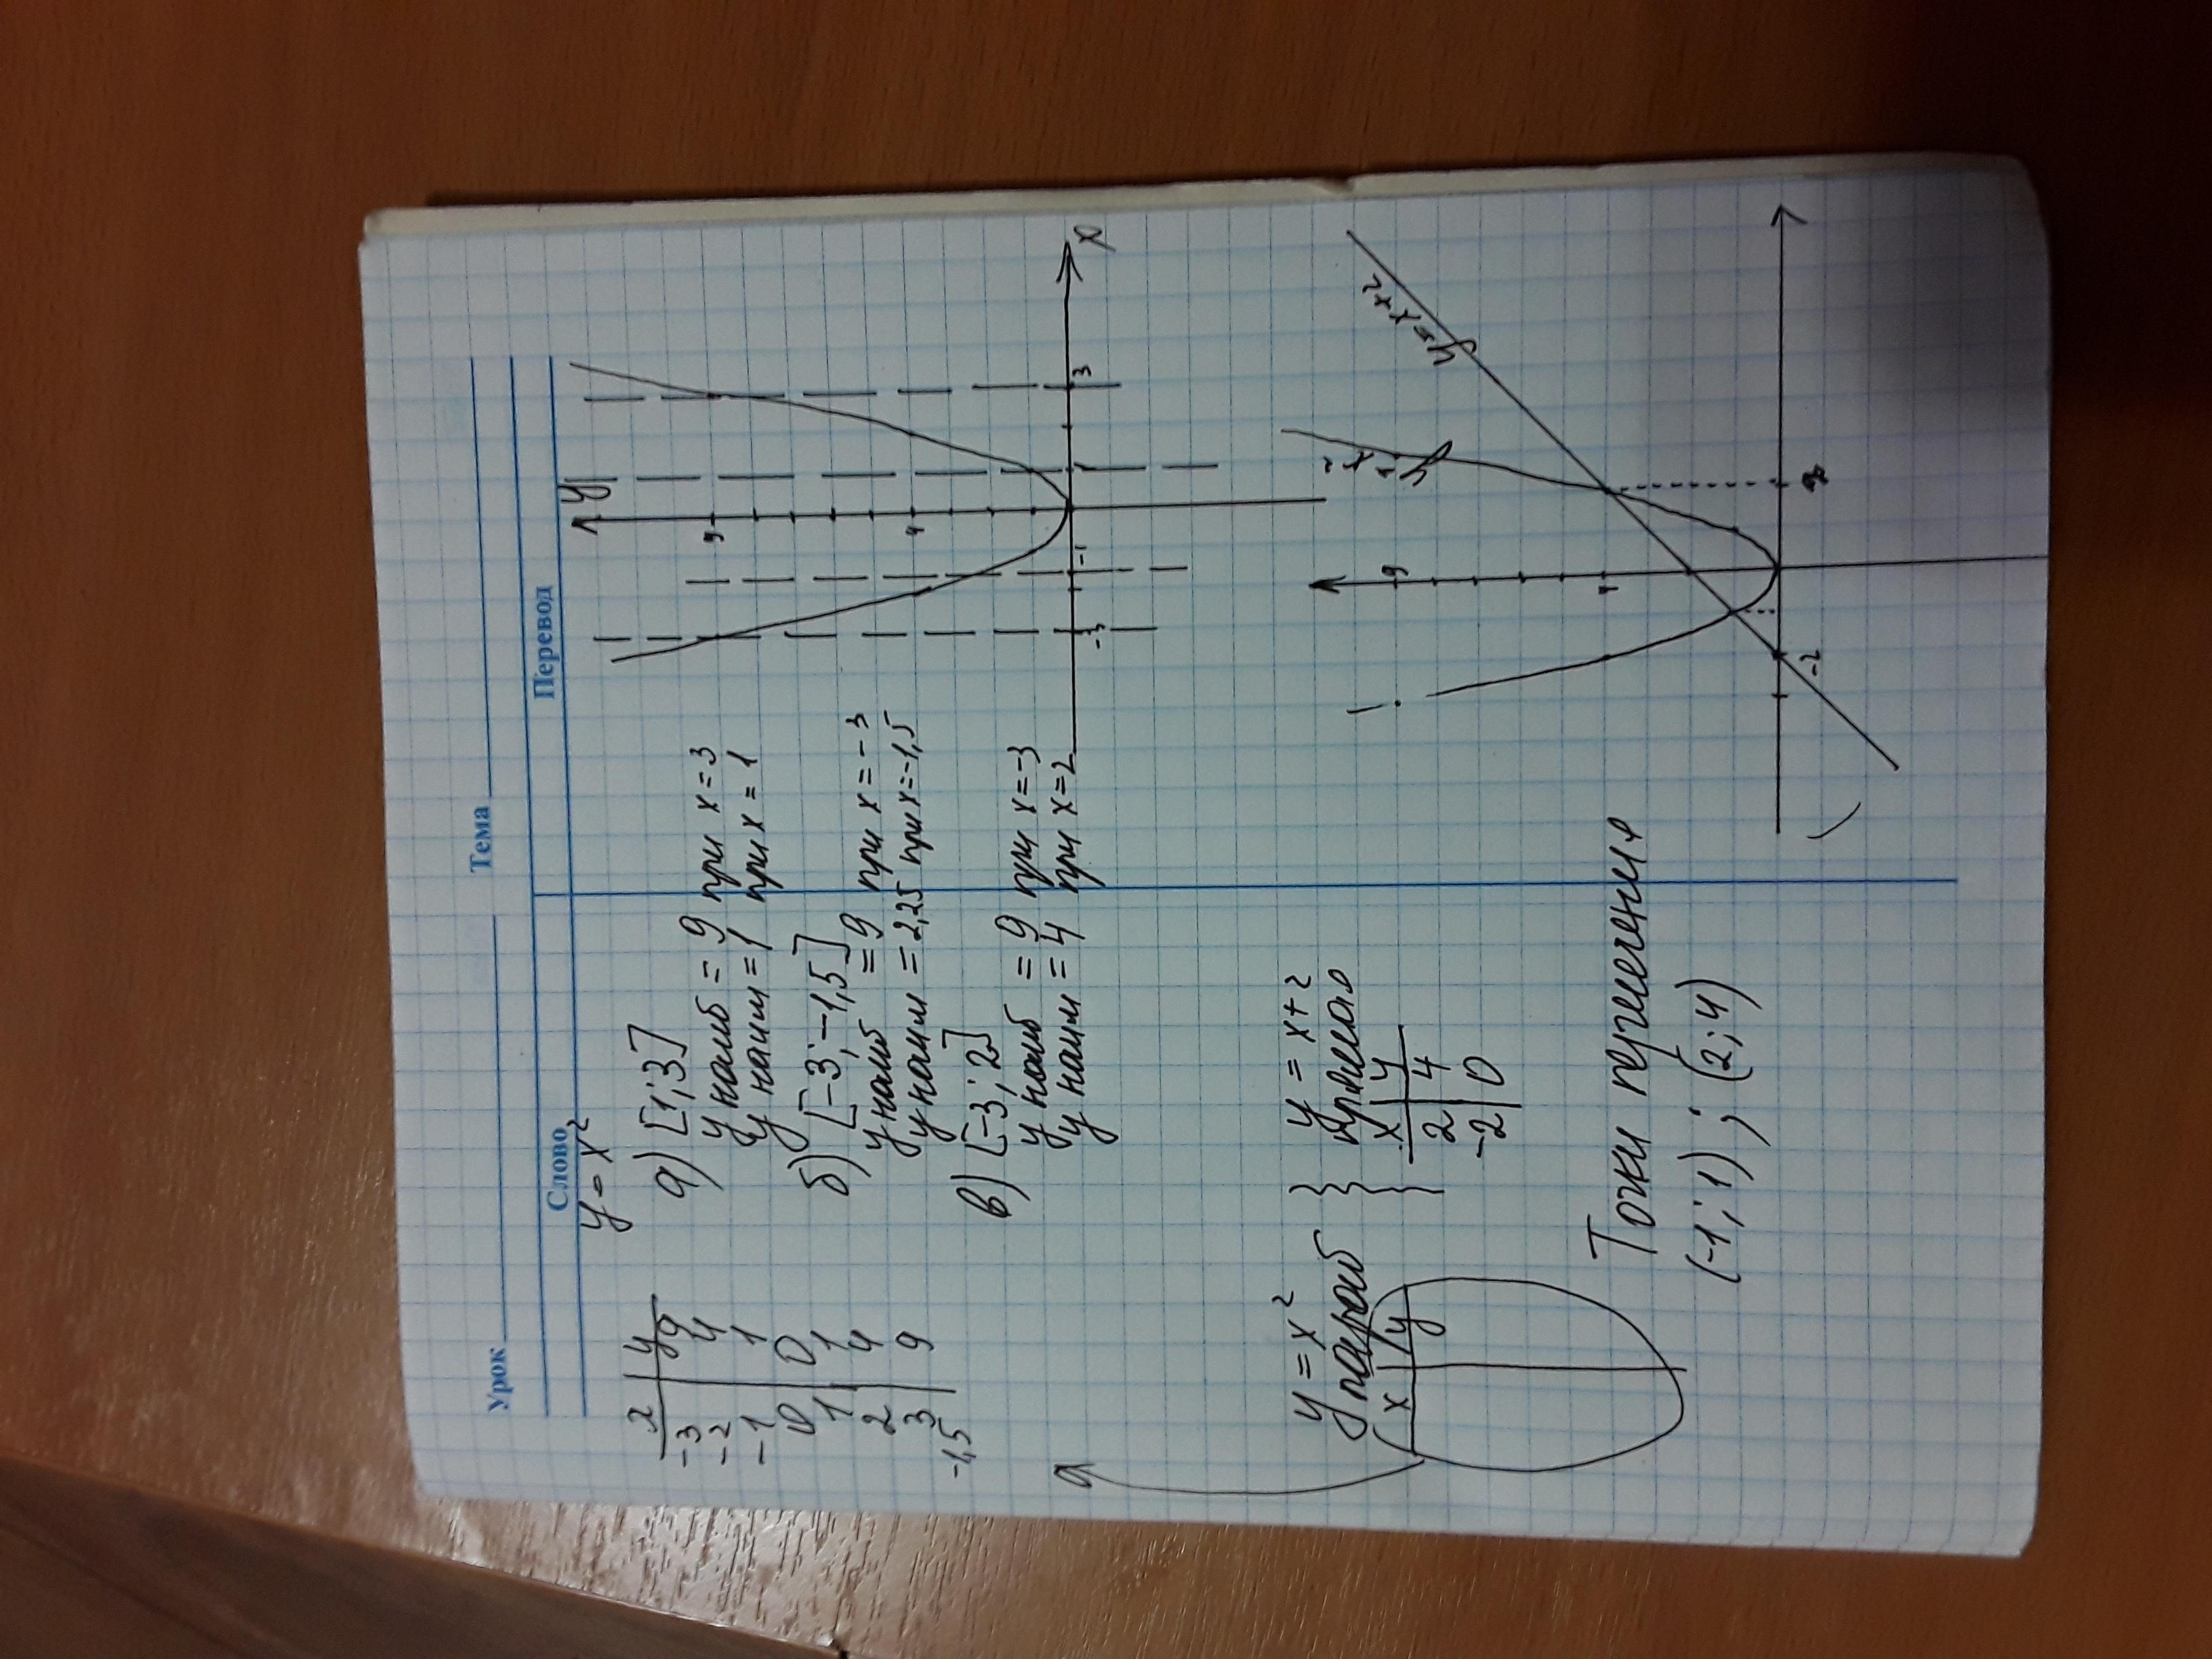 Урок Тема
Слово Перевод
y = x²
x | y
-3 | 9
-2 | 4
-1 | 1
0 | 0
1 | 1
2 | 4
3 | 9
-1,5
а) [1; 3]
y наиб = 9 при x = 3
y наим = 1 при x = 1
б) [-3; -1,5]
y наиб = 9 при x = -3
y наим = 2,25 при x = -1,5
в) [-3; 2]
y наиб = 9 при x = -3
y наим = 4 при x = 2
y
9
4
-3 -1 1 3 x
y = x² } y = x + 2
параб } прямая
x | y
x | y
2 | 4
-2 | 0
Точки пересечения
(-1; 1) ; (2; 4)
y = x²
y = x+2
9
4
-2